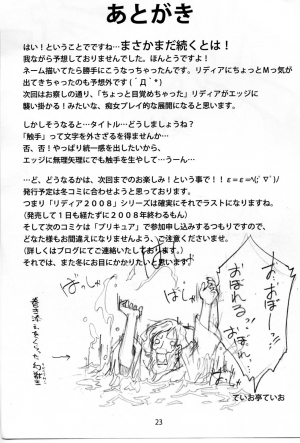 あとがき
はい！ということでですね…まさかまだ続くとは！
我ながら予想しておりませんでした。ほんとうですよ！
ネーム描いてたら勝手にこうなっちゃったんです。リディアにちょっとＭっ気が
出てきちゃったのも予想外です(´Д｀*)
次回はお察しの通り、「ちょっと目覚めちゃった」リディアがエッジに
襲い掛かる！みたいな、痴女プレイ的な展開になると思います。
しかしそうなると…タイトル…どうしましょうね？
「触手」って文字を外さざるを得ませんか…
否、否！やっぱり統一感を出したいから、
エッジに無理矢理にでも触手を生やして…うーん…
…と、どうなるかは、次回までのお楽しみ！という事で！！
発行予定は冬コミに合わせようと思っております。
つまり「リディア２００８」シリーズは確実にそれがラストになりますね。
(発売して１日も経たずに２００８年終わるもん)
そして次のコミケは「プリキュア」で参加申し込みするつもりですので、
どなた様もお間違えになりませんよう、ご注意くださいませ。
(詳しくはブログにてご連絡いたしております。)
それでは、また冬にお目にかかりたいと思います。
おぼれる!!
ばしゃ
ばしゃ
巻き添えをくった幻獣さん
ていお亭ていお
23